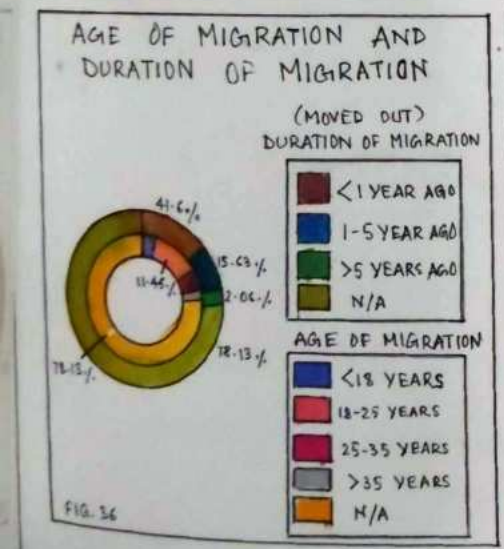 AGE OF MIGRATION AND
DURATION OF MIGRATION
(MOVED OUT)
DURATION OF MIGRATION
<1 YEAR AGO
1-5 YEAR AGO
>5 YEARS AGO
N/A
15.63%
78.13%
AGE OF MIGRATION
<18 YEARS
18-25 YEARS
25-35 YEARS
>35 YEARS
N/A
FIG. 36